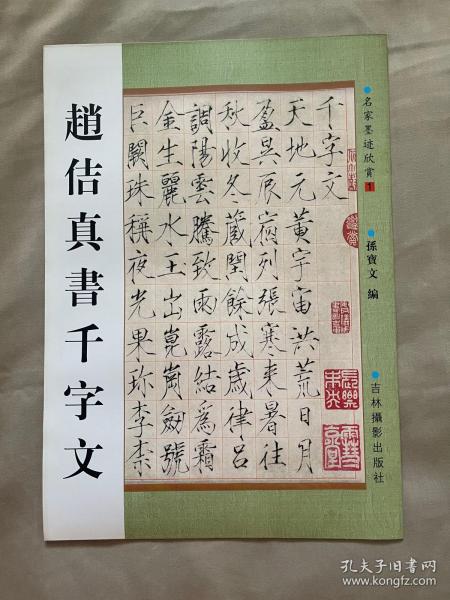 趙佶真書千字文
千字文
天地元黄宇宙洪荒日月
盈昃辰宿列張寒来暑往
秋收冬藏閏餘成歲律吕
調陽雲騰致雨露結為霜
金生麗水玉出崑崗劍號
巨闕珠稱夜光果珍李柰
名家墨迹欣賞1
孫寶文 編
吉林攝影出版社
孔夫子旧书网
www.kongfz.com